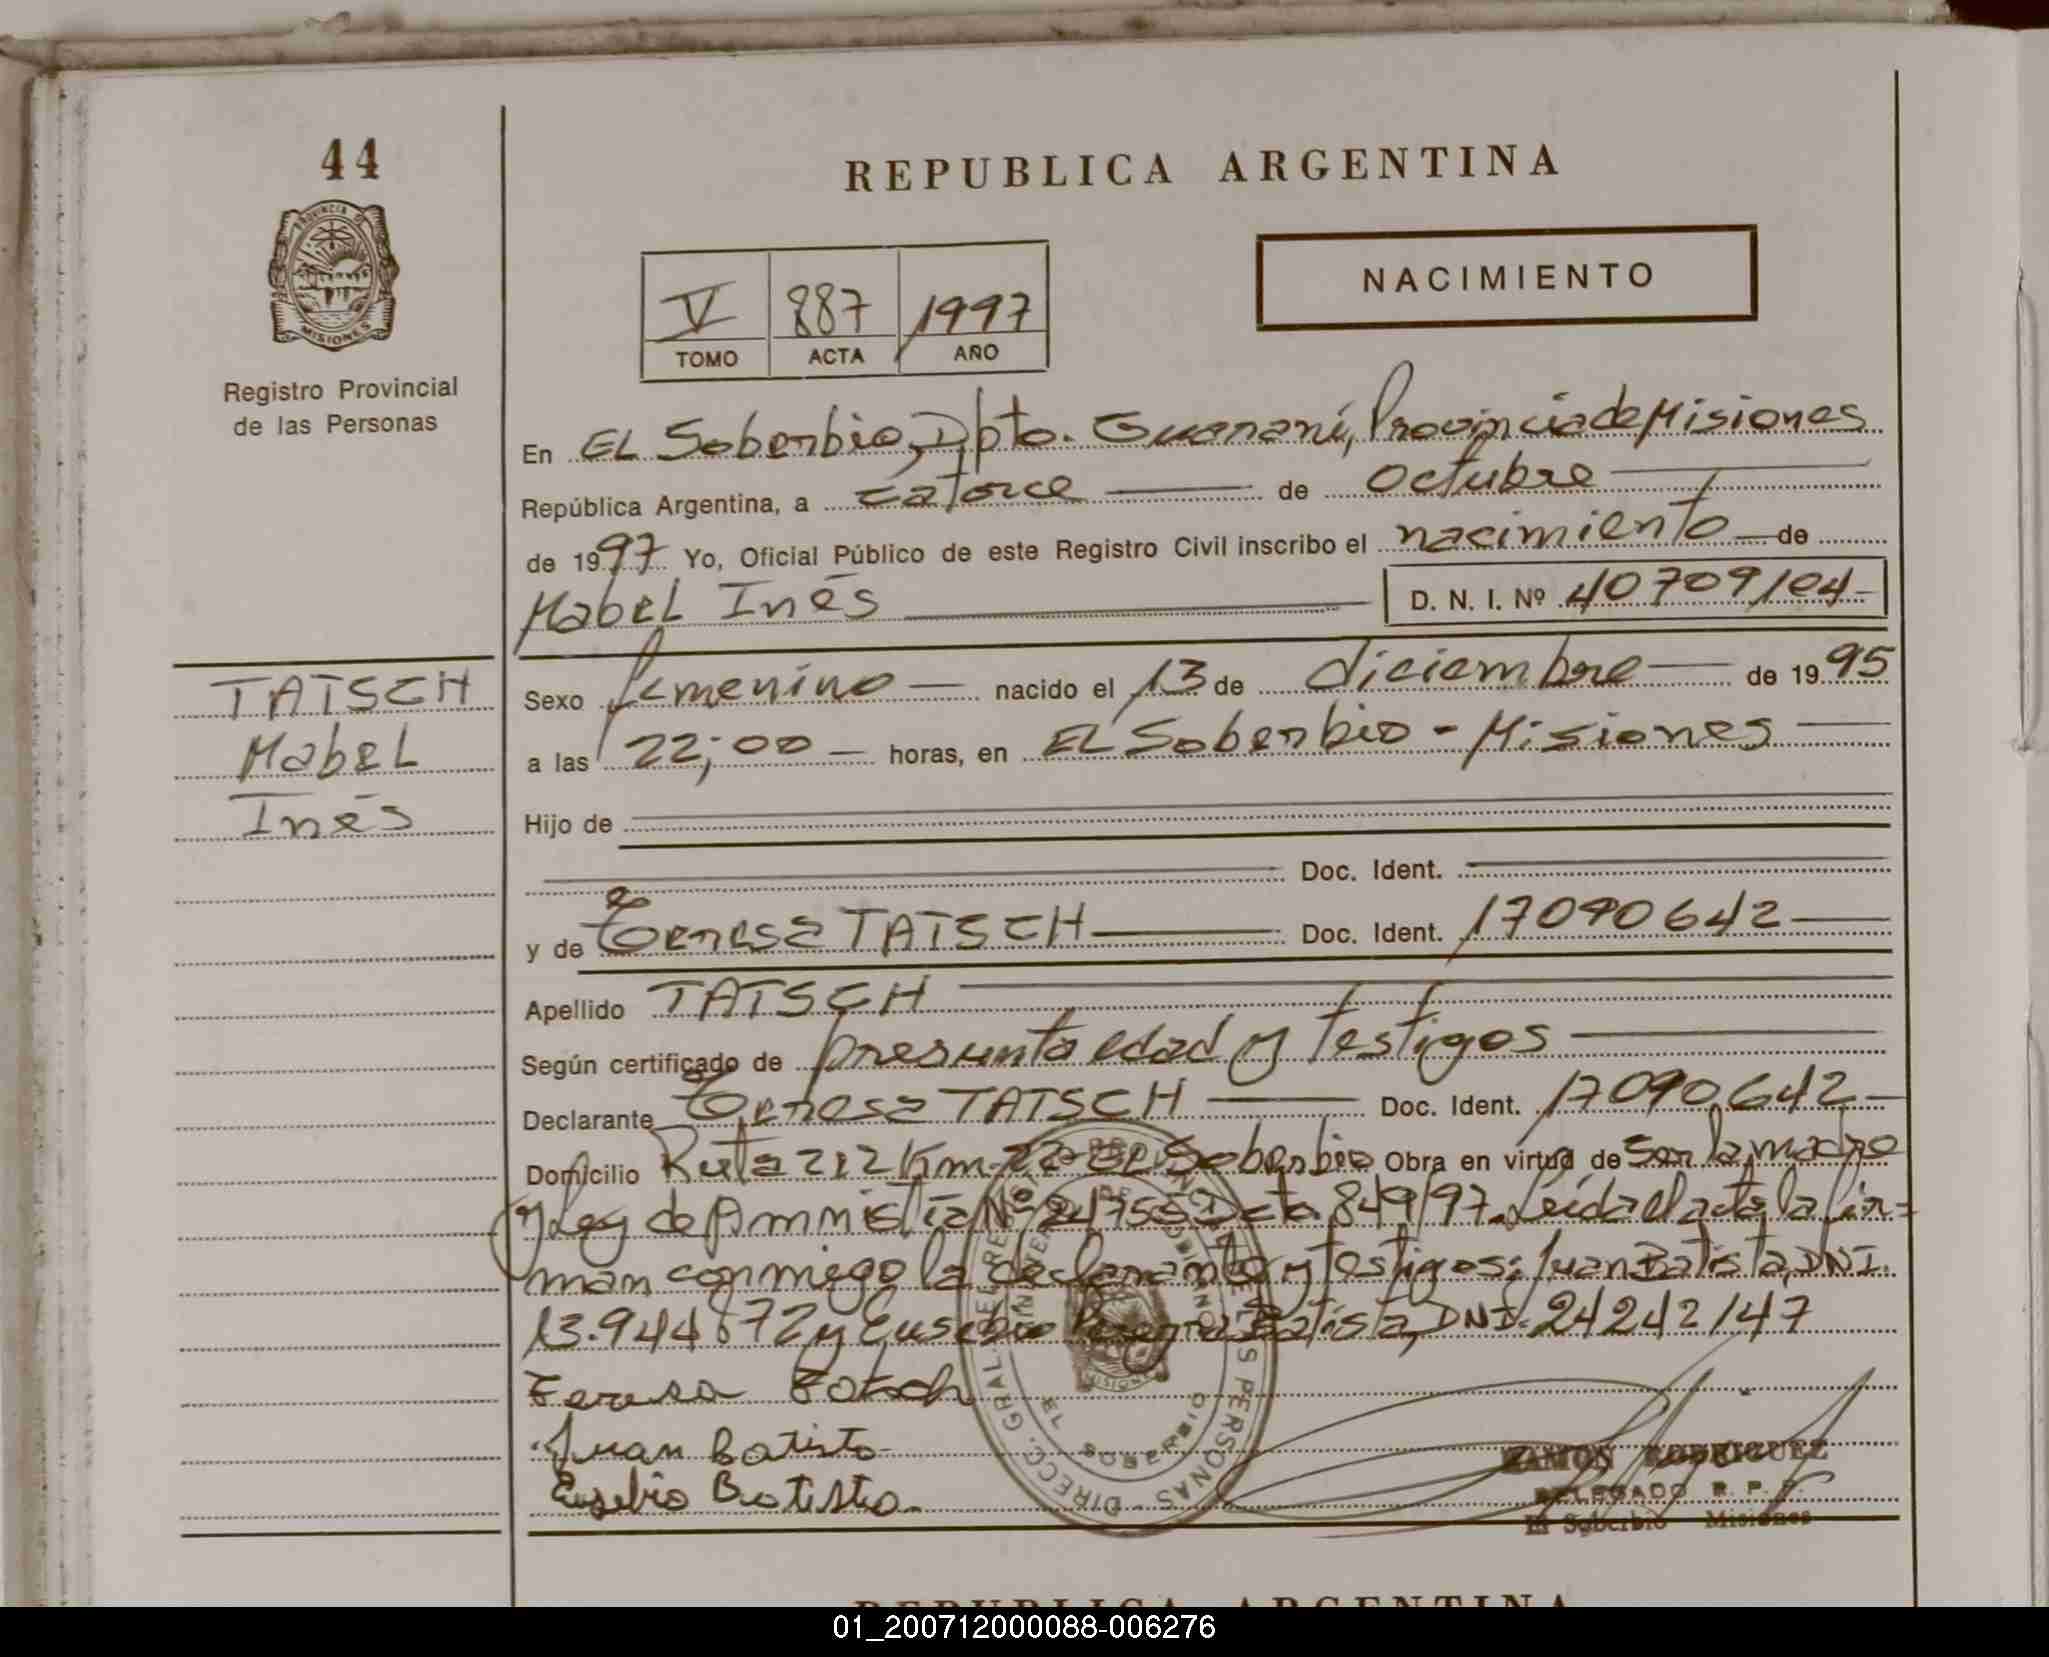 44
REPUBLICA ARGENTINA
PROVINCIA DE
MISIONES
Registro Provincial
de las Personas
NACIMIENTO
V 887 1997
TOMO ACTA AÑO
En EL Soberbio, Dpto. Guaraní, Provincia de Misiones
República Argentina, a catorce de octubre
de 1997 Yo, Oficial Público de este Registro Civil inscribo el nacimiento de
Mabel Inés D. N. I. Nº 40709104
TATSCH
Mabel
Inés
Sexo femenino nacido el 13 de diciembre de 1995
a las 22;00 horas, en EL Soberbio - Misiones
Hijo de
Doc. Ident.
y de Teresa TATSCH Doc. Ident. 17090642
Apellido TATSCH
Según certificado de presunta edad y testigos
Declarante Teresa TATSCH Doc. Ident. 17090642
Domicilio Ruta 212 Km 22 EL Soberbio Obra en virtud de ser la madre
y Ley de Amnistía Nº 24755 Dcto 849/97. Leída el acta, la fir=
man conmigo la declarante y testigos: Juan Batista, DNI.
13.944672 y Eusebio Batista, DNI. 24242147
Teresa Tatsch
Juan Batista
Eusebio Batista
RAMON RODRIGUEZ
DELEGADO R. P. P.
El Soberbio Misiones
REPUBLICA ARGENTINA
01_200712000088-006276